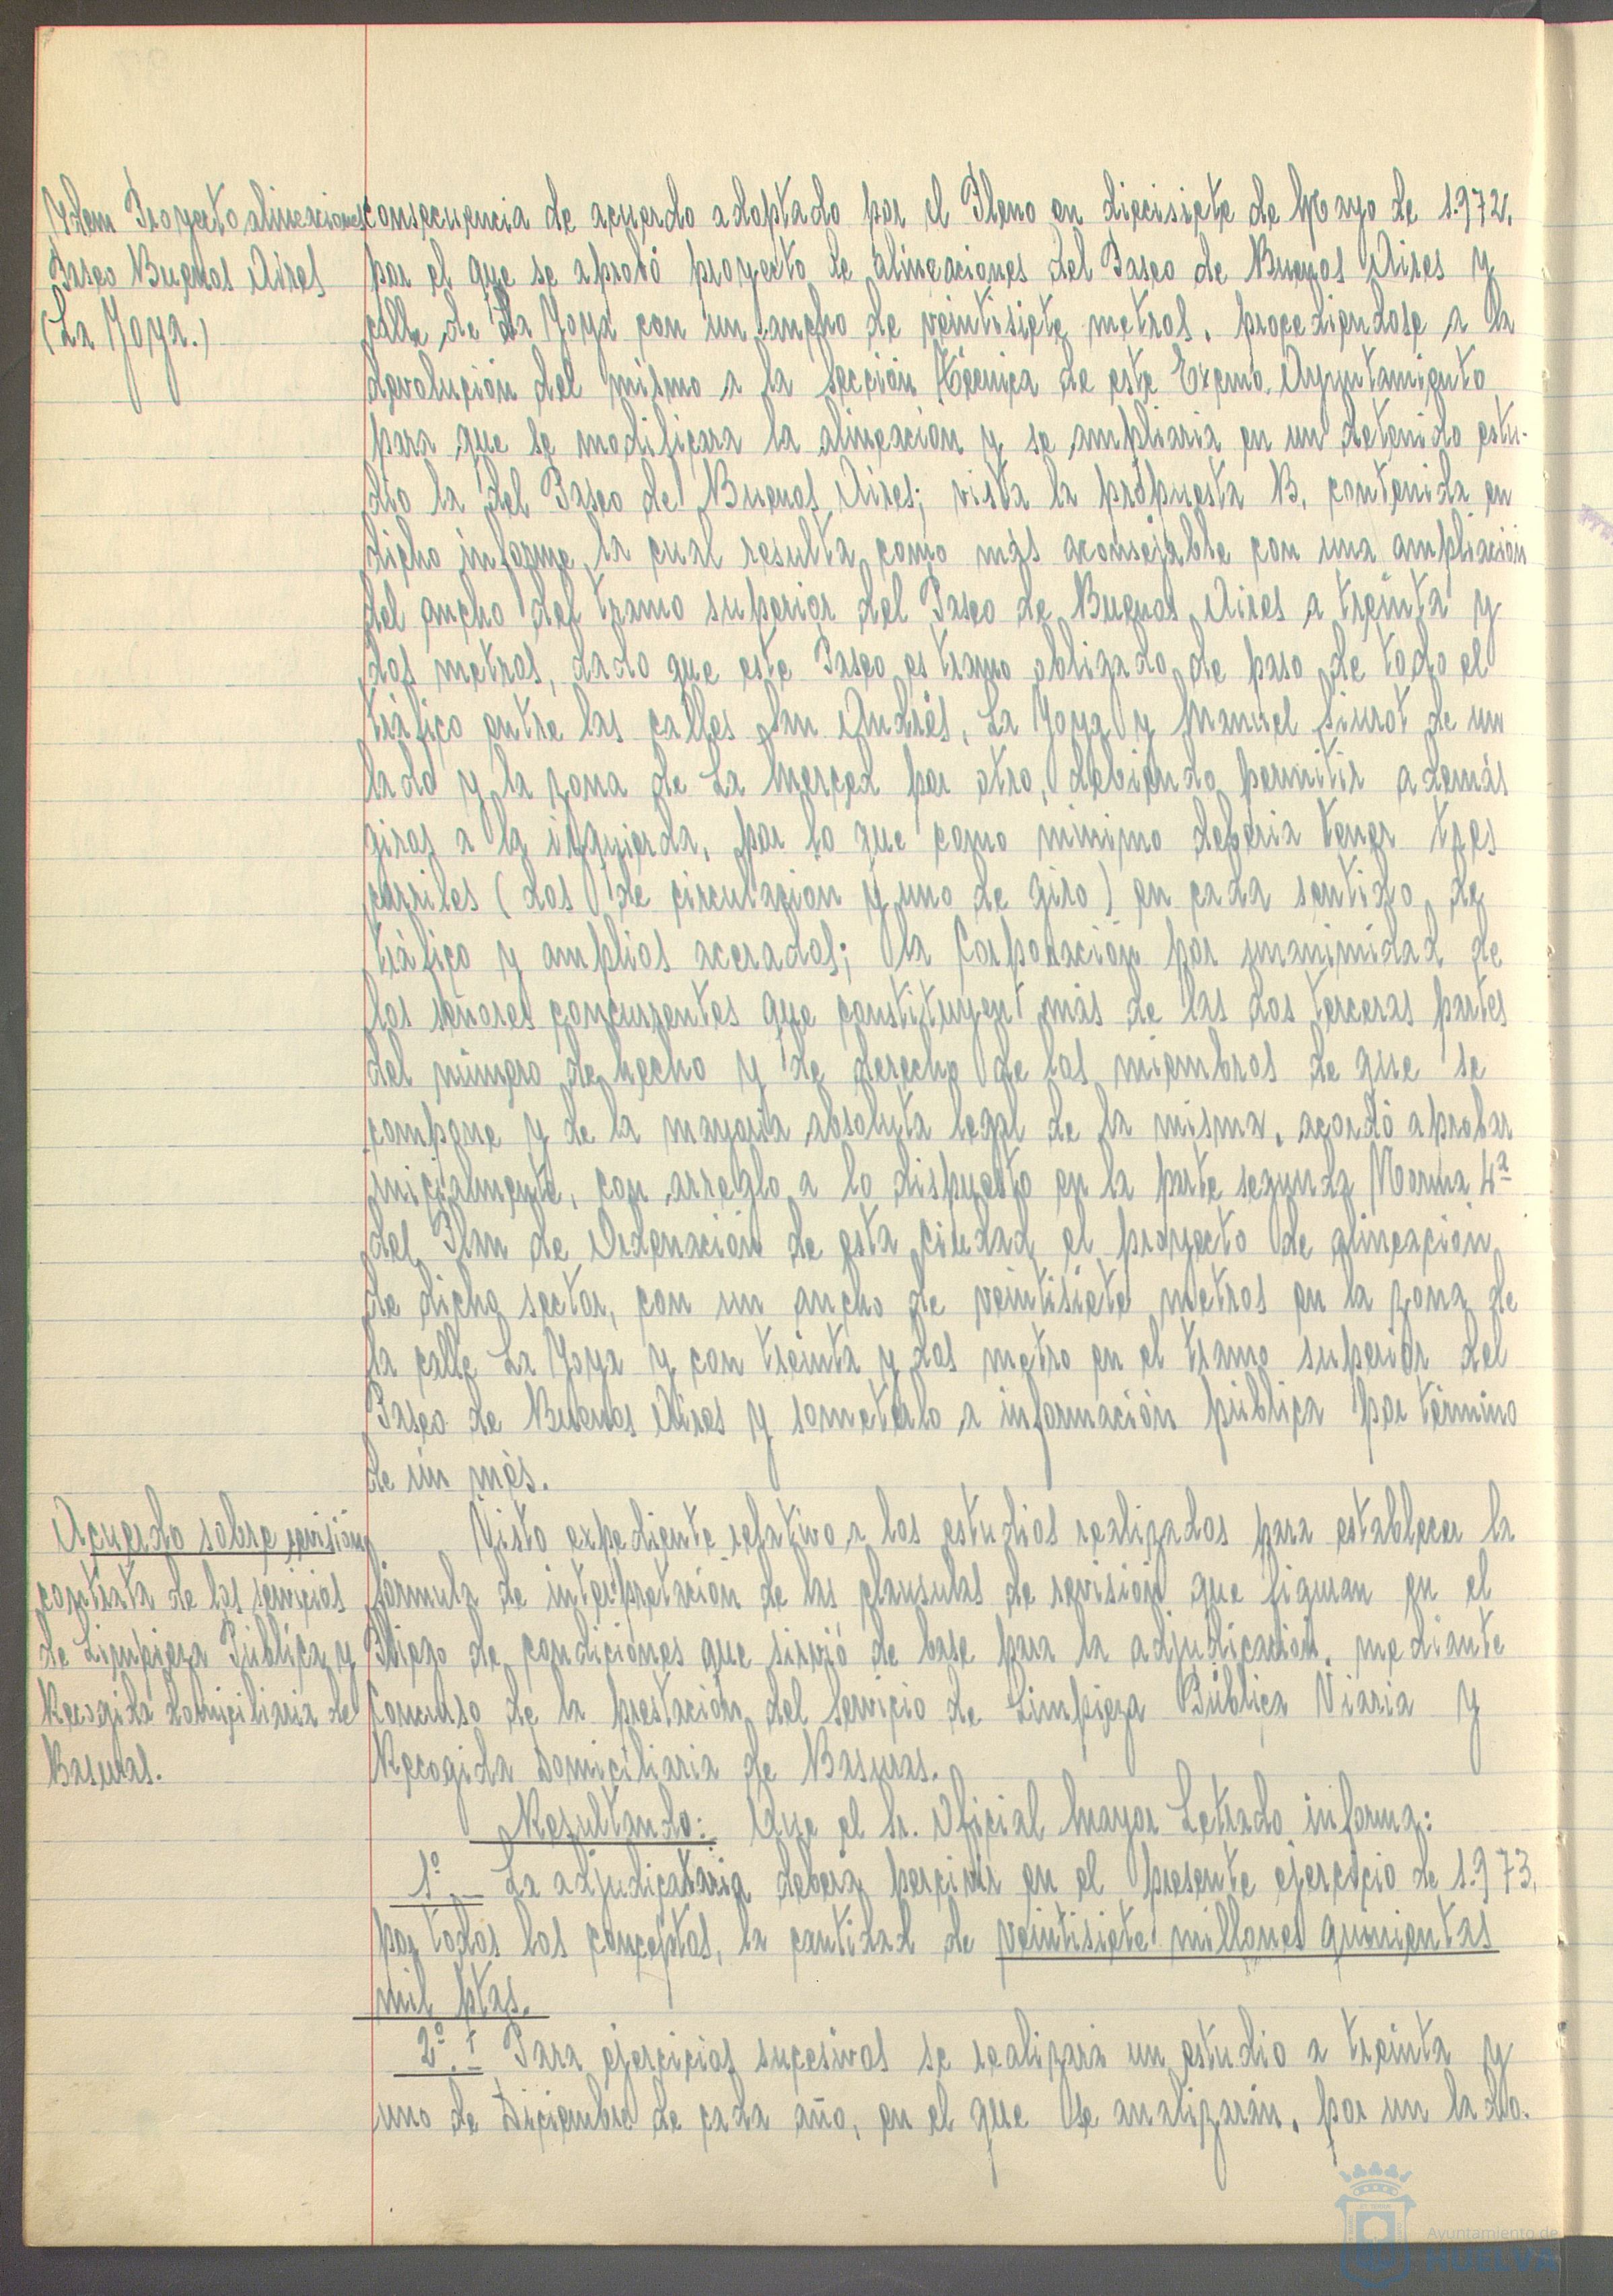 Ydem Proyecto alineaciones
Paseo Buenos Aires
(La Joya.)
consecuencia de acuerdo adoptado por el Pleno en diecisiete de Mayo de 1.972,
por el que se aprobó proyecto de alineaciones del Paseo de Buenos Aires y
calle de La Joya con un ancho de veintisiete metros, procediendose a la
devolución del mismo a la Sección Técnica de este Excmo. Ayuntamiento
para que se modificara la alineación y se ampliaria en un detenido estu-
dio la del Paseo de Buenos Aires; vista la propuesta B, contenida en
dicho informe, la cual resulta como más aconsejable con una ampliación
del ancho del tramo superior del Paseo de Buenos Aires a treinta y
dos metros, dado que este Paseo es tramo obligado de paso de todo el
tráfico entre las calles San Andrés, La Joya y Manuel Siurot de un
lado y la zona de La Merced por otro, debiendo permitir además
giros a la izquierda, por lo que como minimo deberia tener tres
carriles (dos de circulacion y uno de giro) en cada sentido de
tráfico y amplios acerados; la Corporación por unanimidad de
los señores concurrentes que constituyen más de las dos terceras partes
del número de hecho y de derecho de los miembros de que se
compone y de la mayoria absoluta legal de la misma, acordó aprobar
inicialmente, con arreglo a lo dispuesto en la parte segunda Norma 4ª
del Plan de Ordenación de esta ciudad, el proyecto de alineación
de dicho sector, con un ancho de veintisiete metros en la zona de
la calle La Joya y con treinta y dos metro en el tramo superior del
Paseo de Buenos Aires y someterlo a información pública por término
de un mes.
Acuerdo sobre revisión
contrata de los servicios
de Limpieza Pública y
Recogida domiciliaria de
Basuras.
Visto expediente relativo a los estudios realizados para establecer la
fórmula de interpretación de las clausulas de revisión que figuran en el
Pliego de condiciones que sirvió de base para la adjudicación, mediante
Concurso de la prestación del Servicio de Limpieza Pública Viaria y
Recogida Domiciliaria de Basuras.
Resultando: Que el Sr. Oficial Mayor Letrado informa:
1º.- La adjudicataria deberá percibir en el presente ejercicio de 1.973,
por todos los conceptos, la cantidad de veintisiete millones quinientas
mil ptas.
2º.- Para ejercicios sucesivos se realizará un estudio a treinta y
uno de Diciembre de cada año, en el que se analizarán, por un lado.
Ayuntamiento de
HUELVA